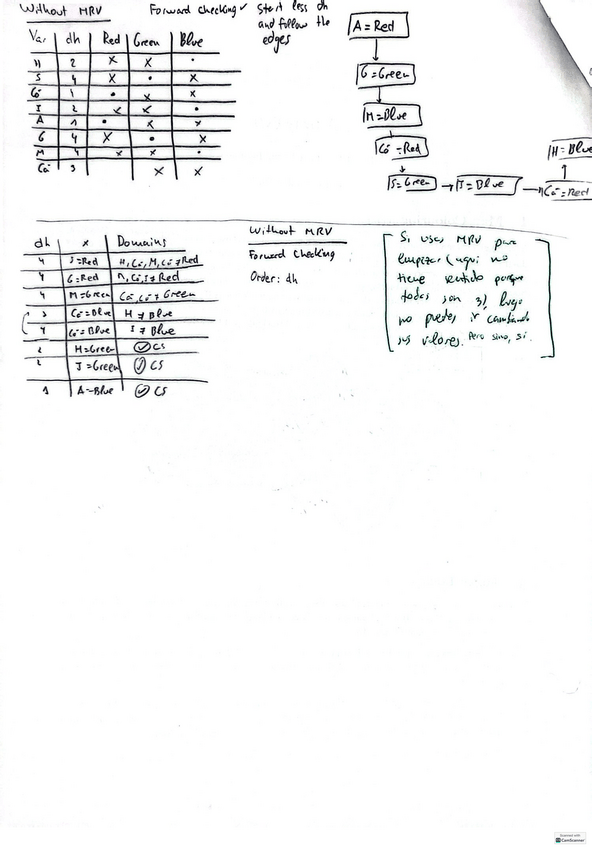 Without MRV
Forward checking ✓
Start less dh
and follow the
edges
Var dh Red Green Blue
H 2 x x •
S 4 x • x
Co 1 • x x
I 2 x x •
A 1 • x x
G 4 x • x
M 4 x x •
Ca 3 x x
A = Red
G = Green
M = Blue
Co = Red
S = Green
I = Blue
Ca = Red
H = Blue
dh x Domains
4 S=Red H, Ca, M, Co ≠ Red
4 G=Red
4 M=Green Ca, Co ≠ Green
3 Ca=Blue H ≠ Blue
Co=Blue I ≠ Blue
2 H=Green ✓ CS
2 I=Green ✓ CS
1 A=Blue ✓ CS
Without MRV
Forward checking
Order: dh
Si usas MRV para
empezar (aqui no
tiene sentido porque
todas son 3), luego
no puedes ir cambiando
sus valores. Pero sino, si.
Scanned with
CamScanner